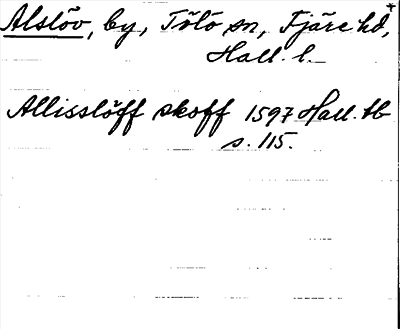 Alslöv, by, Tölö sn, Fjäre hd,
Hall. l.
Allisslöff skoff 1597 Hall. tb
s. 115.